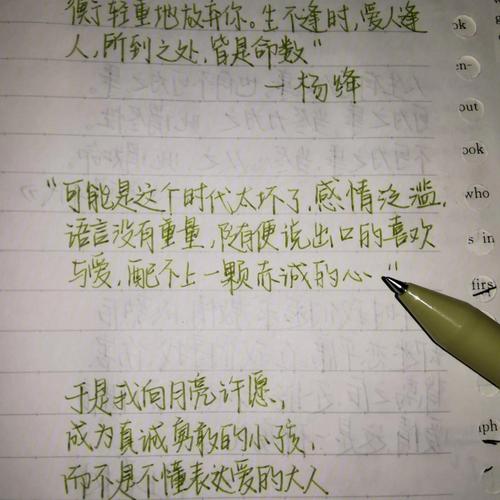 衡了轻重地放弃你。生不逢时,爱人逢
人,所到之处,皆是命数"
—杨绛
"可能是这个时代太坏了,感情泛滥,
语言没有重量,随便说出口的喜欢
与爱,配不上一颗赤诚的心"
于是我向月亮许愿,
成为真诚勇敢的小孩,
而不是不懂表达爱的大人
ok
en-
out
ook
who
s in
firs
aph